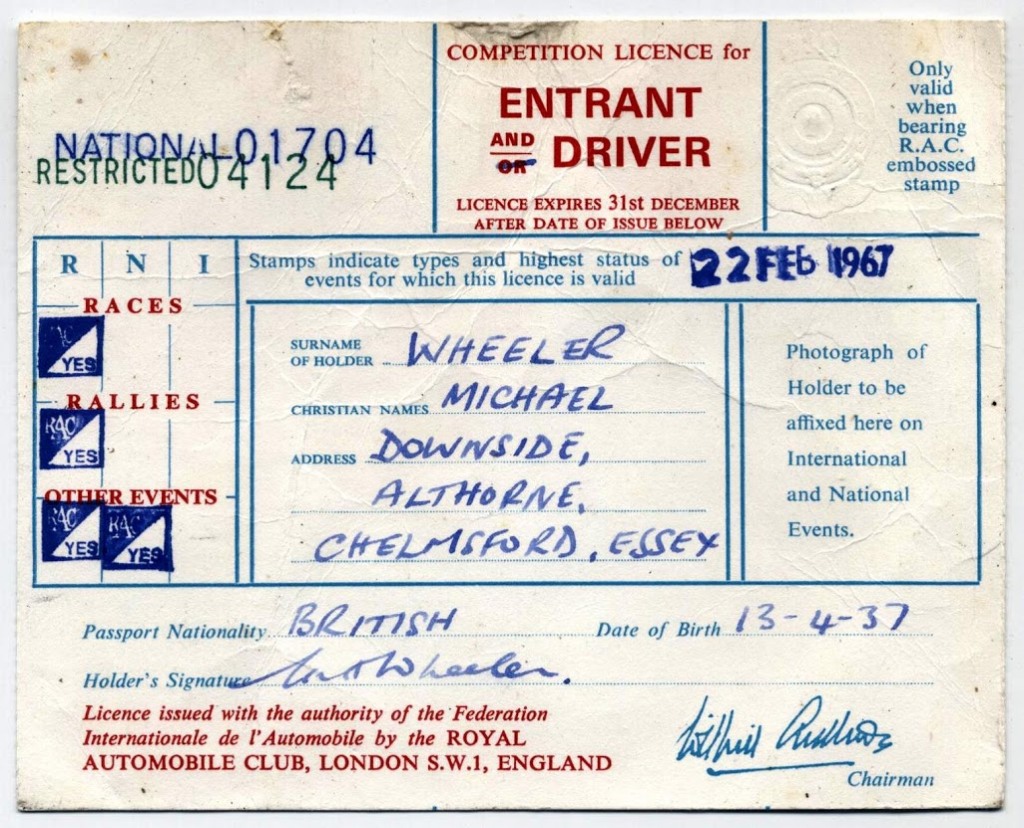 COMPETITION LICENCE for
ENTRANT
AND
OR DRIVER
LICENCE EXPIRES 31st DECEMBER
AFTER DATE OF ISSUE BELOW
Only
valid
when
bearing
R.A.C.
embossed
stamp
NATIONAL 01704
RESTRICTED 04124
R N I
Stamps indicate types and highest status of
events for which this licence is valid
22 FEB 1967
RACES
RAC YES
RALLIES
RAC YES
OTHER EVENTS
RAC YES RAC YES
SURNAME
OF HOLDER WHEELER
CHRISTIAN NAMES MICHAEL
ADDRESS DOWNSIDE,
ALTHORNE,
CHELMSFORD, ESSEX
Photograph of
Holder to be
affixed here on
International
and National
Events.
Passport Nationality BRITISH
Date of Birth 13-4-37
Holder's Signature Wheeler.
Licence issued with the authority of the Federation
Internationale de l'Automobile by the ROYAL
AUTOMOBILE CLUB, LONDON S.W.1, ENGLAND
Chairman